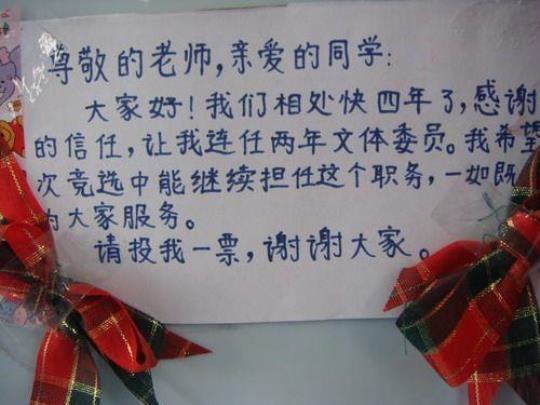 尊敬的老师,亲爱的同学:
大家好!我们相处快四年了,感谢
的信任,让我连任两年文体委员。我希望
次竞选中能继续担任这个职务,一如既
为大家服务。
请投我一票,谢谢大家。